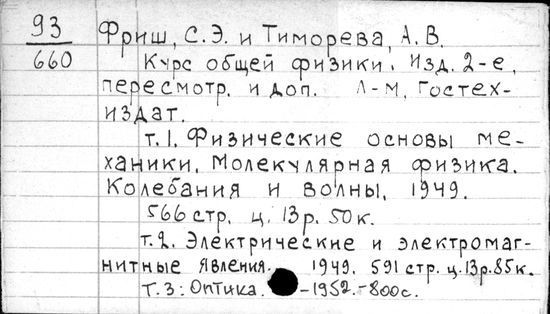 93
660
Фриш, С.Э. и Тиморева, А.В.
Курс общей физики. Изд. 2-е,
пересмотр. и доп. Л-М, Гостех-
издат.
т.1. Физические основы ме-
ханики. Молекулярная физика.
Колебания и волны, 1949.
566 стр. ц. 13р. 50к.
т.2. Электрические и электромаг-
нитные явления. 1949. 591 стр. ц.13р.85к.
Т.3: Оптика. -1952.-800с.